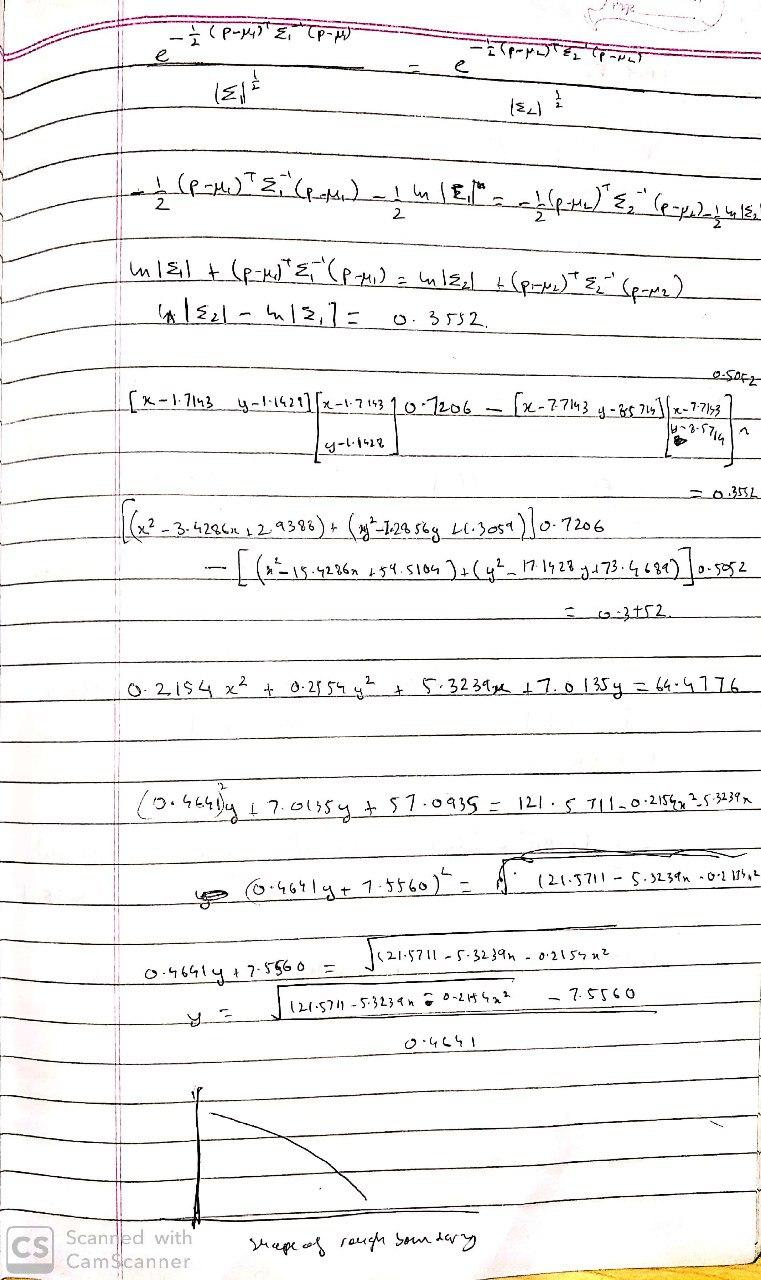 e^{-1/2 (p-μ₁)ᵀ Σ₁⁻¹ (p-μ)} / |Σ₁|^{1/2} = e^{-1/2 (p-μ₂)ᵀ Σ₂⁻¹ (p-μ₂)} / |Σ₂|^{1/2}
-1/2 (p-μ₁)ᵀ Σ₁⁻¹ (p-μ₁) - 1/2 ln |Σ₁| = -1/2 (p-μ₂)ᵀ Σ₂⁻¹ (p-μ₂) - 1/2 ln |Σ₂
ln |Σ₁| + (p-μ₁)ᵀ Σ₁⁻¹ (p-μ₁) = ln |Σ₂| + (p-μ₂)ᵀ Σ₂⁻¹ (p-μ₂)
ln |Σ₂| - ln |Σ₁| = 0.3552
0.5052
[x-1.7143 y-1.1429] [x-1.7143 y-1.1428] 0.7206 - [x-7.7143 y-8.5714] [x-7.7143 y-8.5714]
= 0.3552
[(x² - 3.4286x + 2.9388) + (y² - 2.2856y + 1.3059)] 0.7206
- [(x² - 15.4286x + 59.5104) + (y² - 17.1428y + 73.4689)] 0.5052
= 0.3552
0.2154 x² + 0.2154 y² + 5.3239x + 7.0135y = 64.4776
(0.4641)²y + 7.0135y + 57.0935 = 121.5711 - 0.2154x² - 5.3239x
(0.4641y + 7.5560)² = 121.5711 - 5.3239x - 0.2154x²
0.4641y + 7.5560 = √121.5711 - 5.3239x - 0.2154x²
y = √121.5711 - 5.3239x - 0.2154x² - 7.5560
0.4641
shape of rough boundary
CS Scanned with
CamScanner